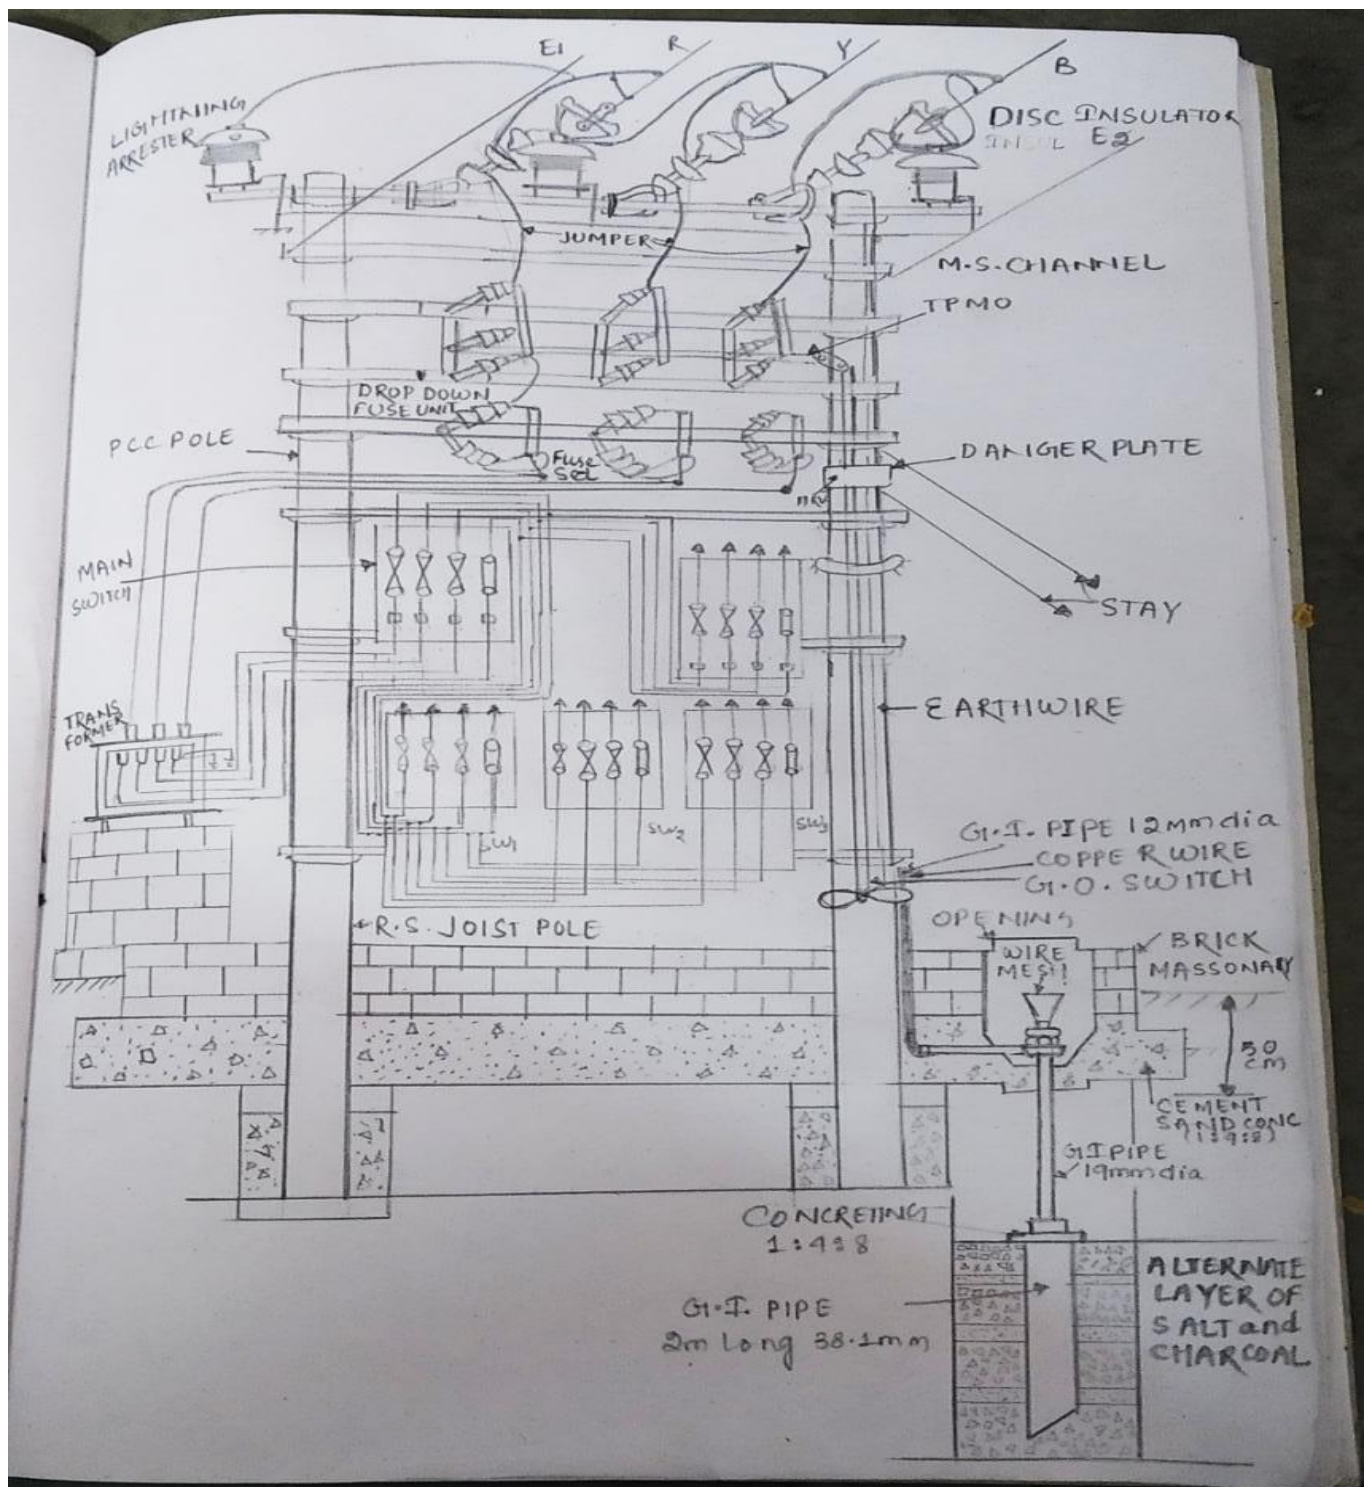 E1
R
Y
B
LIGHTNING
ARRESTER
DISC INSULATOR
INSUL E2
JUMPER
M.S. CHANNEL
TPMO
DROP DOWN
FUSE UNIT
PCC POLE
Fuse
Set
DANGER PLATE
11KV
MAIN
SWITCH
STAY
TRANS
FORMER
EARTHWIRE
SW1
SW2
SW3
G.I. PIPE 12mm dia
COPPER WIRE
G.O. SWITCH
R.S. JOIST POLE
OPENING
WIRE
MESH
BRICK
MASSONARY
50
cm
CEMENT
SAND CONC
(1:4:8)
G I PIPE
19mm dia
CONCRETING
1:4:8
G.I. PIPE
2m long 38.1mm
ALTERNATE
LAYER OF
SALT and
CHARCOAL